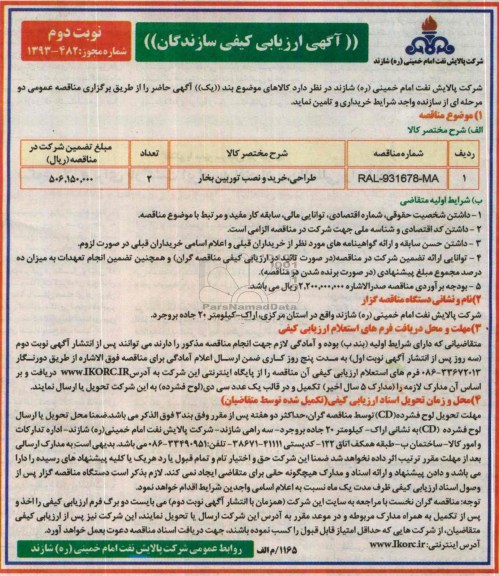 نوبت دوم
شماره مجوز: ۴۸۲-۱۳۹۳
(( آگهی ارزیابی کیفی سازندگان))
شرکت پالایش نفت امام خمینی (ره) شازند
شرکت پالایش نفت امام خمینی (ره) شازند در نظر دارد کالاهای موضوع بند ((یک)) آگهی حاضر را از طریق برگزاری مناقصه عمومی دو
مرحله ای از سازنده واجد شرایط خریداری و تامین نماید.
۱) موضوع مناقصه
الف) شرح مختصر کالا
ردیف شماره مناقصه شرح مختصر کالا تعداد مبلغ تضمین شرکت در مناقصه (ریال)
۱ RAL-931678-MA طراحی،خرید و نصب توربین بخار ۲ ۵۰۶,۱۵۰,۰۰۰
ب) شرایط اولیه متقاضی
۱ - داشتن شخصیت حقوقی، شماره اقتصادی، توانایی مالی، سابقه کار مفید و مرتبط با موضوع مناقصه.
۲ - داشتن کد اقتصادی و شناسه ملی جهت شرکت در مناقصه الزامی است.
۳ - داشتن حسن سابقه و ارائه گواهینامه های مورد نظر از خریداران قبلی و اعلام اسامی خریداران قبلی در صورت لزوم.
۴ - توانایی ارائه تضمین شرکت در مناقصه(در صورت تائید در ارزیابی کیفی مناقصه گران) و همچنین تضمین انجام تعهدات به میزان ده
درصد مجموع مبلغ پیشنهادی (در صورت برنده شدن در مناقصه).
۵ - بودجه برآوردی مناقصه صدرالاشاره ۲,۲۰۰,۰۰۰,۰۰۰ ریال می باشد.
ParsNamadData
۲) نام و نشانی دستگاه مناقصه گزار
شرکت پالایش نفت امام خمینی (ره) شازند واقع در استان مرکزی،اراک-کیلومتر ۲۰ جاده بروجرد.
۳) مهلت و محل دریافت فرم های استعلام ارزیابی کیفی
متقاضیانی که دارای شرایط اولیه (بند ب) بوده و آمادگی لازم جهت انجام مناقصه مذکور را دارند می توانند پس از انتشار آگهی نوبت دوم
(سه روز پس از انتشار آگهی نوبت اول) به مدت پنج روز کاری ضمن ارسال اعلام آمادگی برای مناقصه فوق الاشاره از طریق دورنگار
۳۳۶۷۲۰۱۳-۰۸۶ فرم های استعلام ارزیابی کیفی آن مناقصه را از پایگاه اینترنتی این شرکت به آدرس WWW.IKORC.IR دریافت و بر
اساس آن مدارک لازمه را (مدارک ۵ سال اخیر) تکمیل و در قالب یک عدد سی دی(لوح فشرده) به این شرکت تحویل یا ارسال نمایند.
۴) محل و زمان تحویل اسناد ارزیابی کیفی(تکمیل شده توسط متقاضیان)
مهلت تحویل لوح فشرده(CD) توسط مناقصه گران،حداکثر دو هفته پس از مقرر وفق بند۳ فوق الذکر می باشد.ضمنا محل تحویل یا ارسال
لوح فشرده (CD)به نشانی اراک- کیلومتر ۲۰ جاده بروجرد- سه راهی شازند- شرکت پالایش نفت امام خمینی (ره) شازند- اداره تدارکات
و امور کالا- ساختمان ب-طبقه همکف اتاق ۱۲۲- کدپستی ۴۱۱۱۱-۳۸۶۷۱ -تلفن: ۳۳۴۹۰۹۵۱-۰۸۶ می باشد. بدیهی است به مدارک ارسالی
بعد از مهلت مقرر ترتیب اثر داده نخواهد شد ضمنا این شرکت حق و اختیار تام و تمام قبول یا رد هر یک یا کلیه پیشنهاد های رسیده را دارا
می باشد و دادن پیشنهاد و ارائه اسناد و مدارک هیچگونه حقی برای متقاضی ایجاد نمی کند. لازم بذکر است دستگاه مناقصه گزار پس از
وصول اسناد ارزیابی کیفی ظرف مدت یک ماه نسبت به اعلام اسامی واجدین شرایط اقدام خواهد نمود.
توجه: مناقصه گران نخست با مراجعه به سایت این شرکت (همزمان با انتشار آگهی نوبت دوم) می بایست دو برگ فرم ارزیابی کیفی را اخذ و
پس از تکمیل به همراه مدارک مربوطه و در موعد مقرر به آدرس این شرکت ارسال یا تحویل نمایند، این شرکت نیز پس از ارزیابی کیفی
متقاضیان، از شرکت هایی که حداقل امتیاز قابل قبول را کسب نموده باشند، جهت دریافت اسناد مناقصه دعوت بعمل خواهد آورد.
آدرس اینترنتی: www.Ikorc.ir
۱۱۶۵/م الف
روابط عمومی شرکت پالایش نفت امام خمینی (ره) شازند